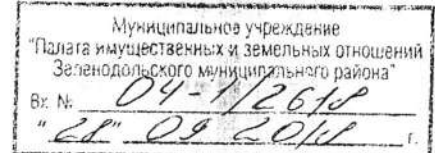 Муниципальное учреждение
"Палата имущественных и земельных отношений
Зеленодольского муниципального района"
Вх. № 04-1/2618
"28" 09 2018 г.